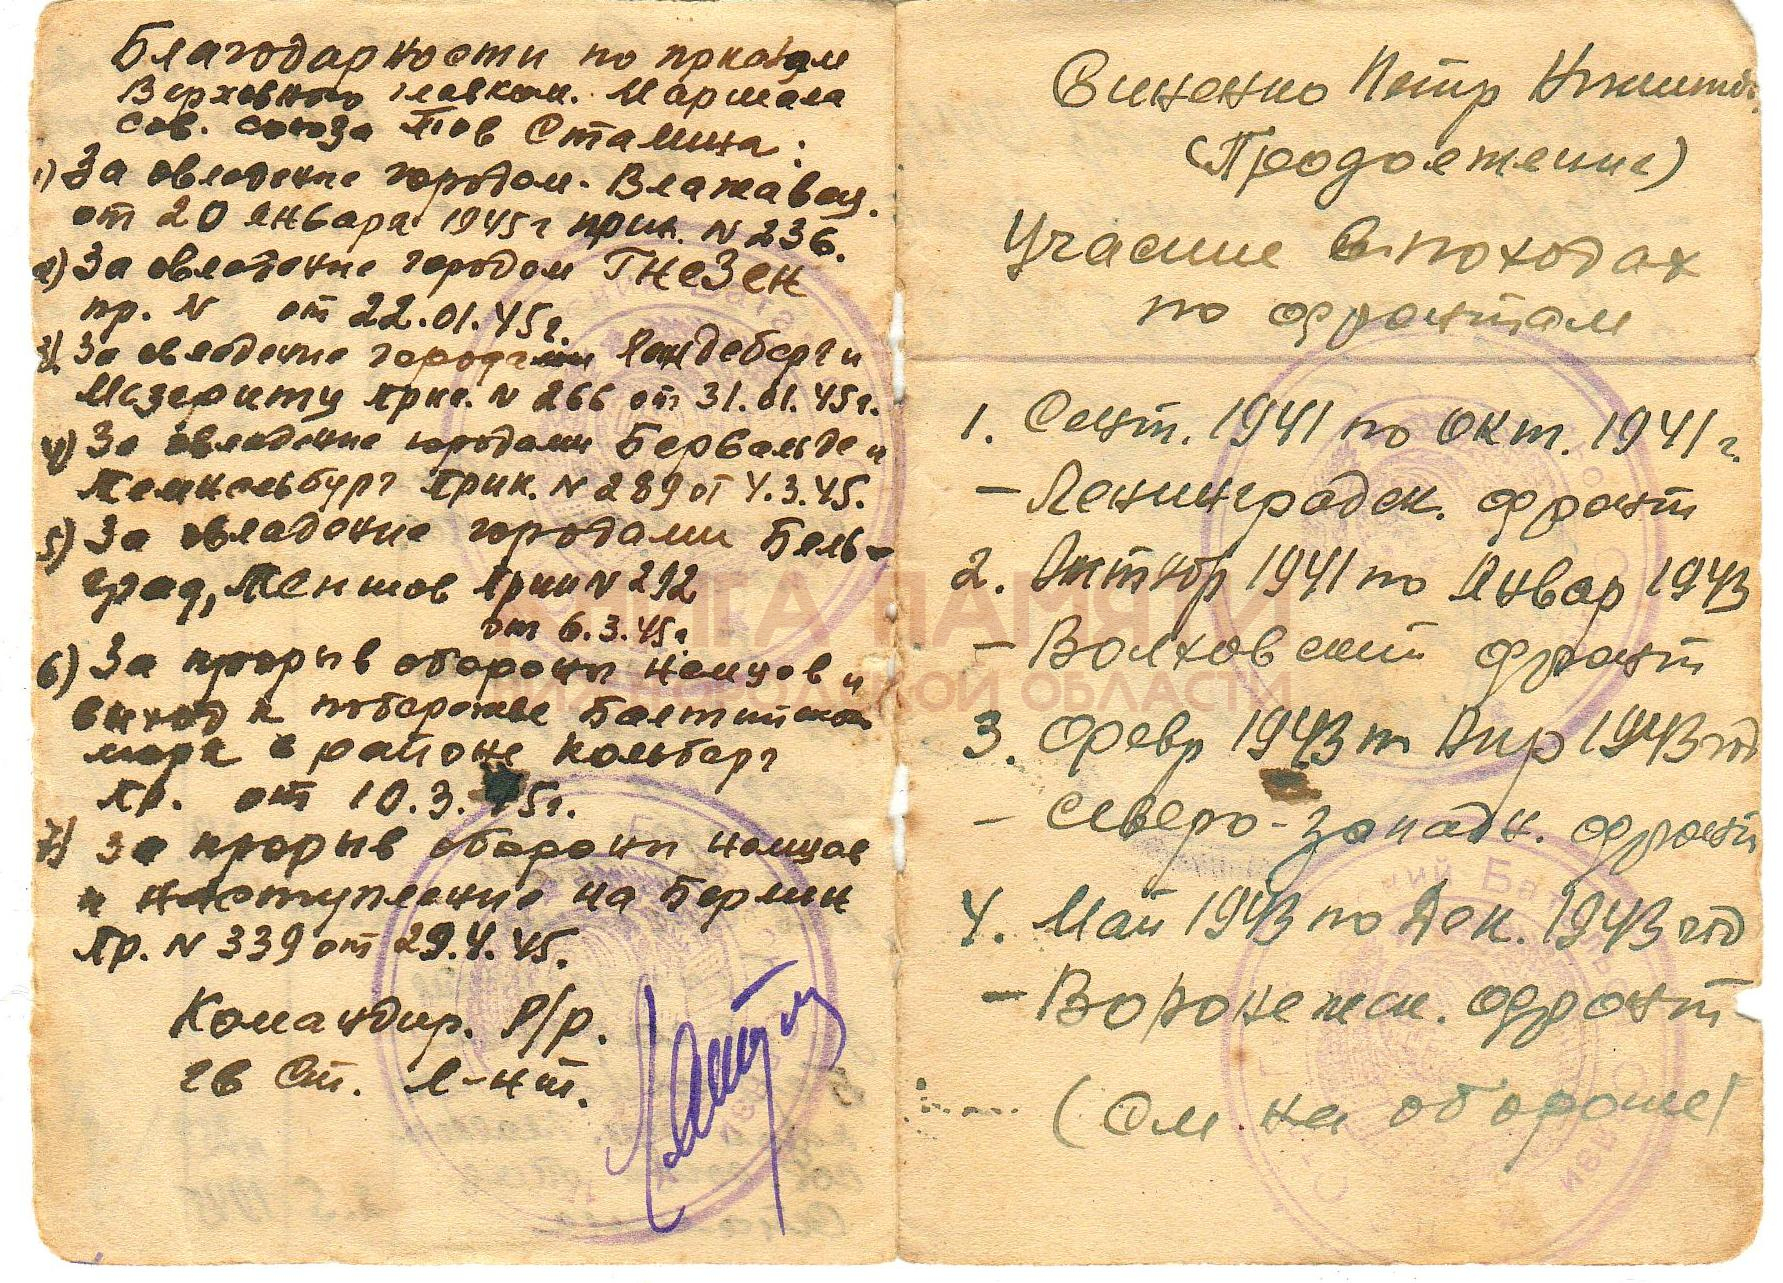 Благодарности по приказам
Верховного главком. Маршала
сов. союза Тов Сталина:
1) За овладение городом. Влажавец.
от 20 января 1945 г прик. N 236.
2) За овладение городом Гнезен
пр. N от 22.01.45 г.
3) За овладение городами Ландсберг и
Мезеритц Прик. N 266 от 31.01.45 г.
4) За овладение городами Бервальде и
Темпельбург Прик. N 289 от 4.3.45.
5) За овладение городами Бель-
град, Прик N 292
от 6.3.45 г.
6) За прорыв обороны немцов и
выход к побережье Балтийского
моря в районе Кольберг
Пр. от 10.3.45 г.
7) За прорыв обороны немцов
и наступление на Берлин
Пр. N 339 от 29.4.45.
Командир. Р/р.
гв Ст. Л-нт.
Петр
(Продолжение)
Участие в походах
по фронтам
1. Сент. 1941 по Окт. 1941 г.
- Ленинградск. фронт
2. Октябр 1941 по Январ 1943
- Волховский фронт
3. Февр 1943 Апр 1943 год
- Северо-Западн. фронт
4. Май 1943 по Дек. 1943 год
- Воронежск. фронт
(См на обороте)
КНИГА ПАМЯТИ
НИЖЕГОРОДСКОЙ ОБЛАСТИ